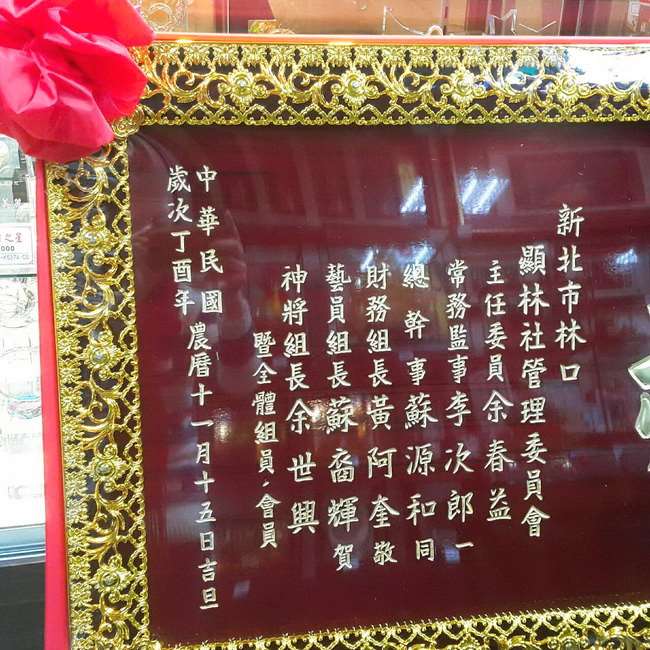 新北市林口
顯林社管理委員會
主任委員余春益
常務監事李次郎一
總幹事蘇源和同
財務組長黃阿奎敬
藝員組長蘇裔輝賀
神將組長余世興
暨全體組員,會員
中華民國
歲次丁酉年農曆十一月十五日吉旦